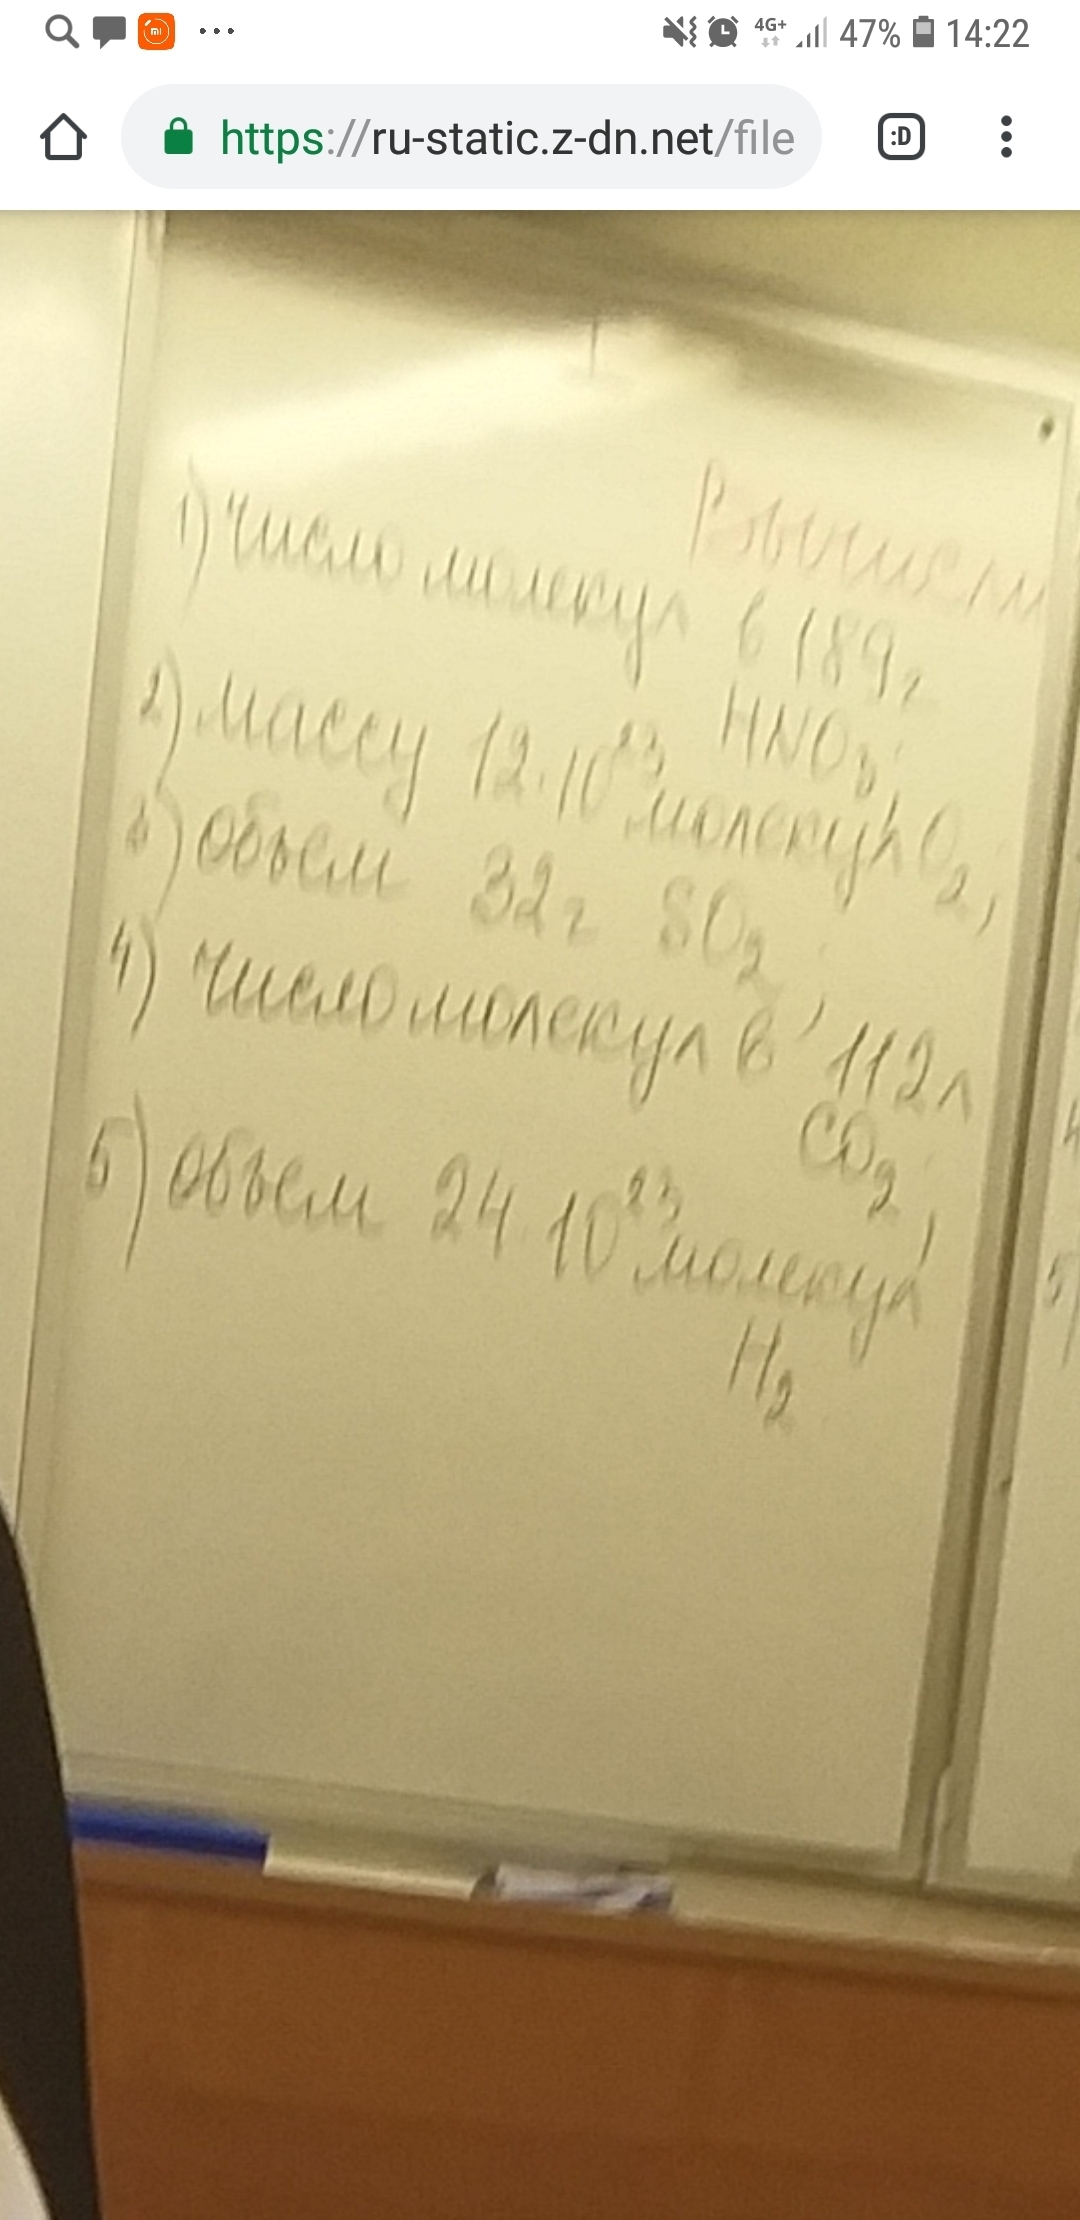 4G+ 47% 14:22
https://ru-static.z-dn.net/file
:D
Вычисли
1) Число молекул в 189 г
HNO3;
2) массу 12·10²³ молекул O2;
3) объем 32 г SO2;
4) число молекул в 112 л
CO2;
5) объем 24·10²³ молекул
H2